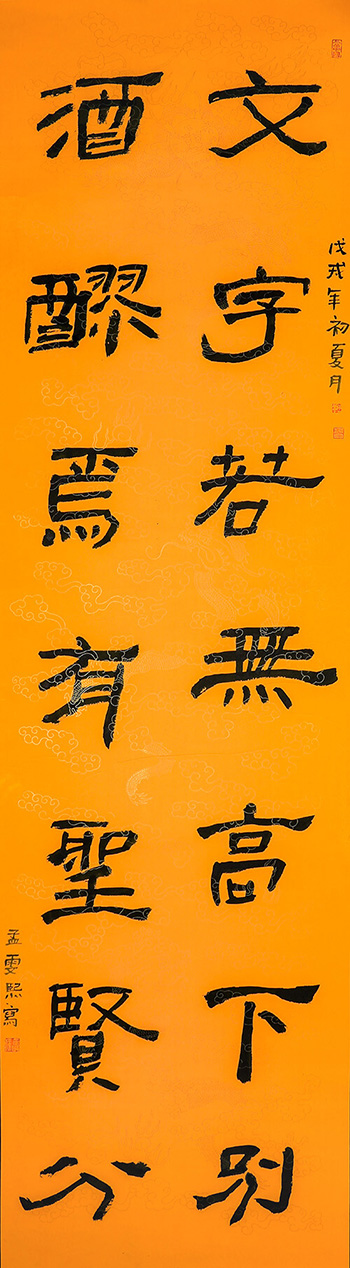 文字若無高下別
戊戌年初夏月
酒醪焉有聖賢分
孟雯熙寫